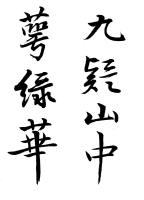 九疑山中
萼綠華